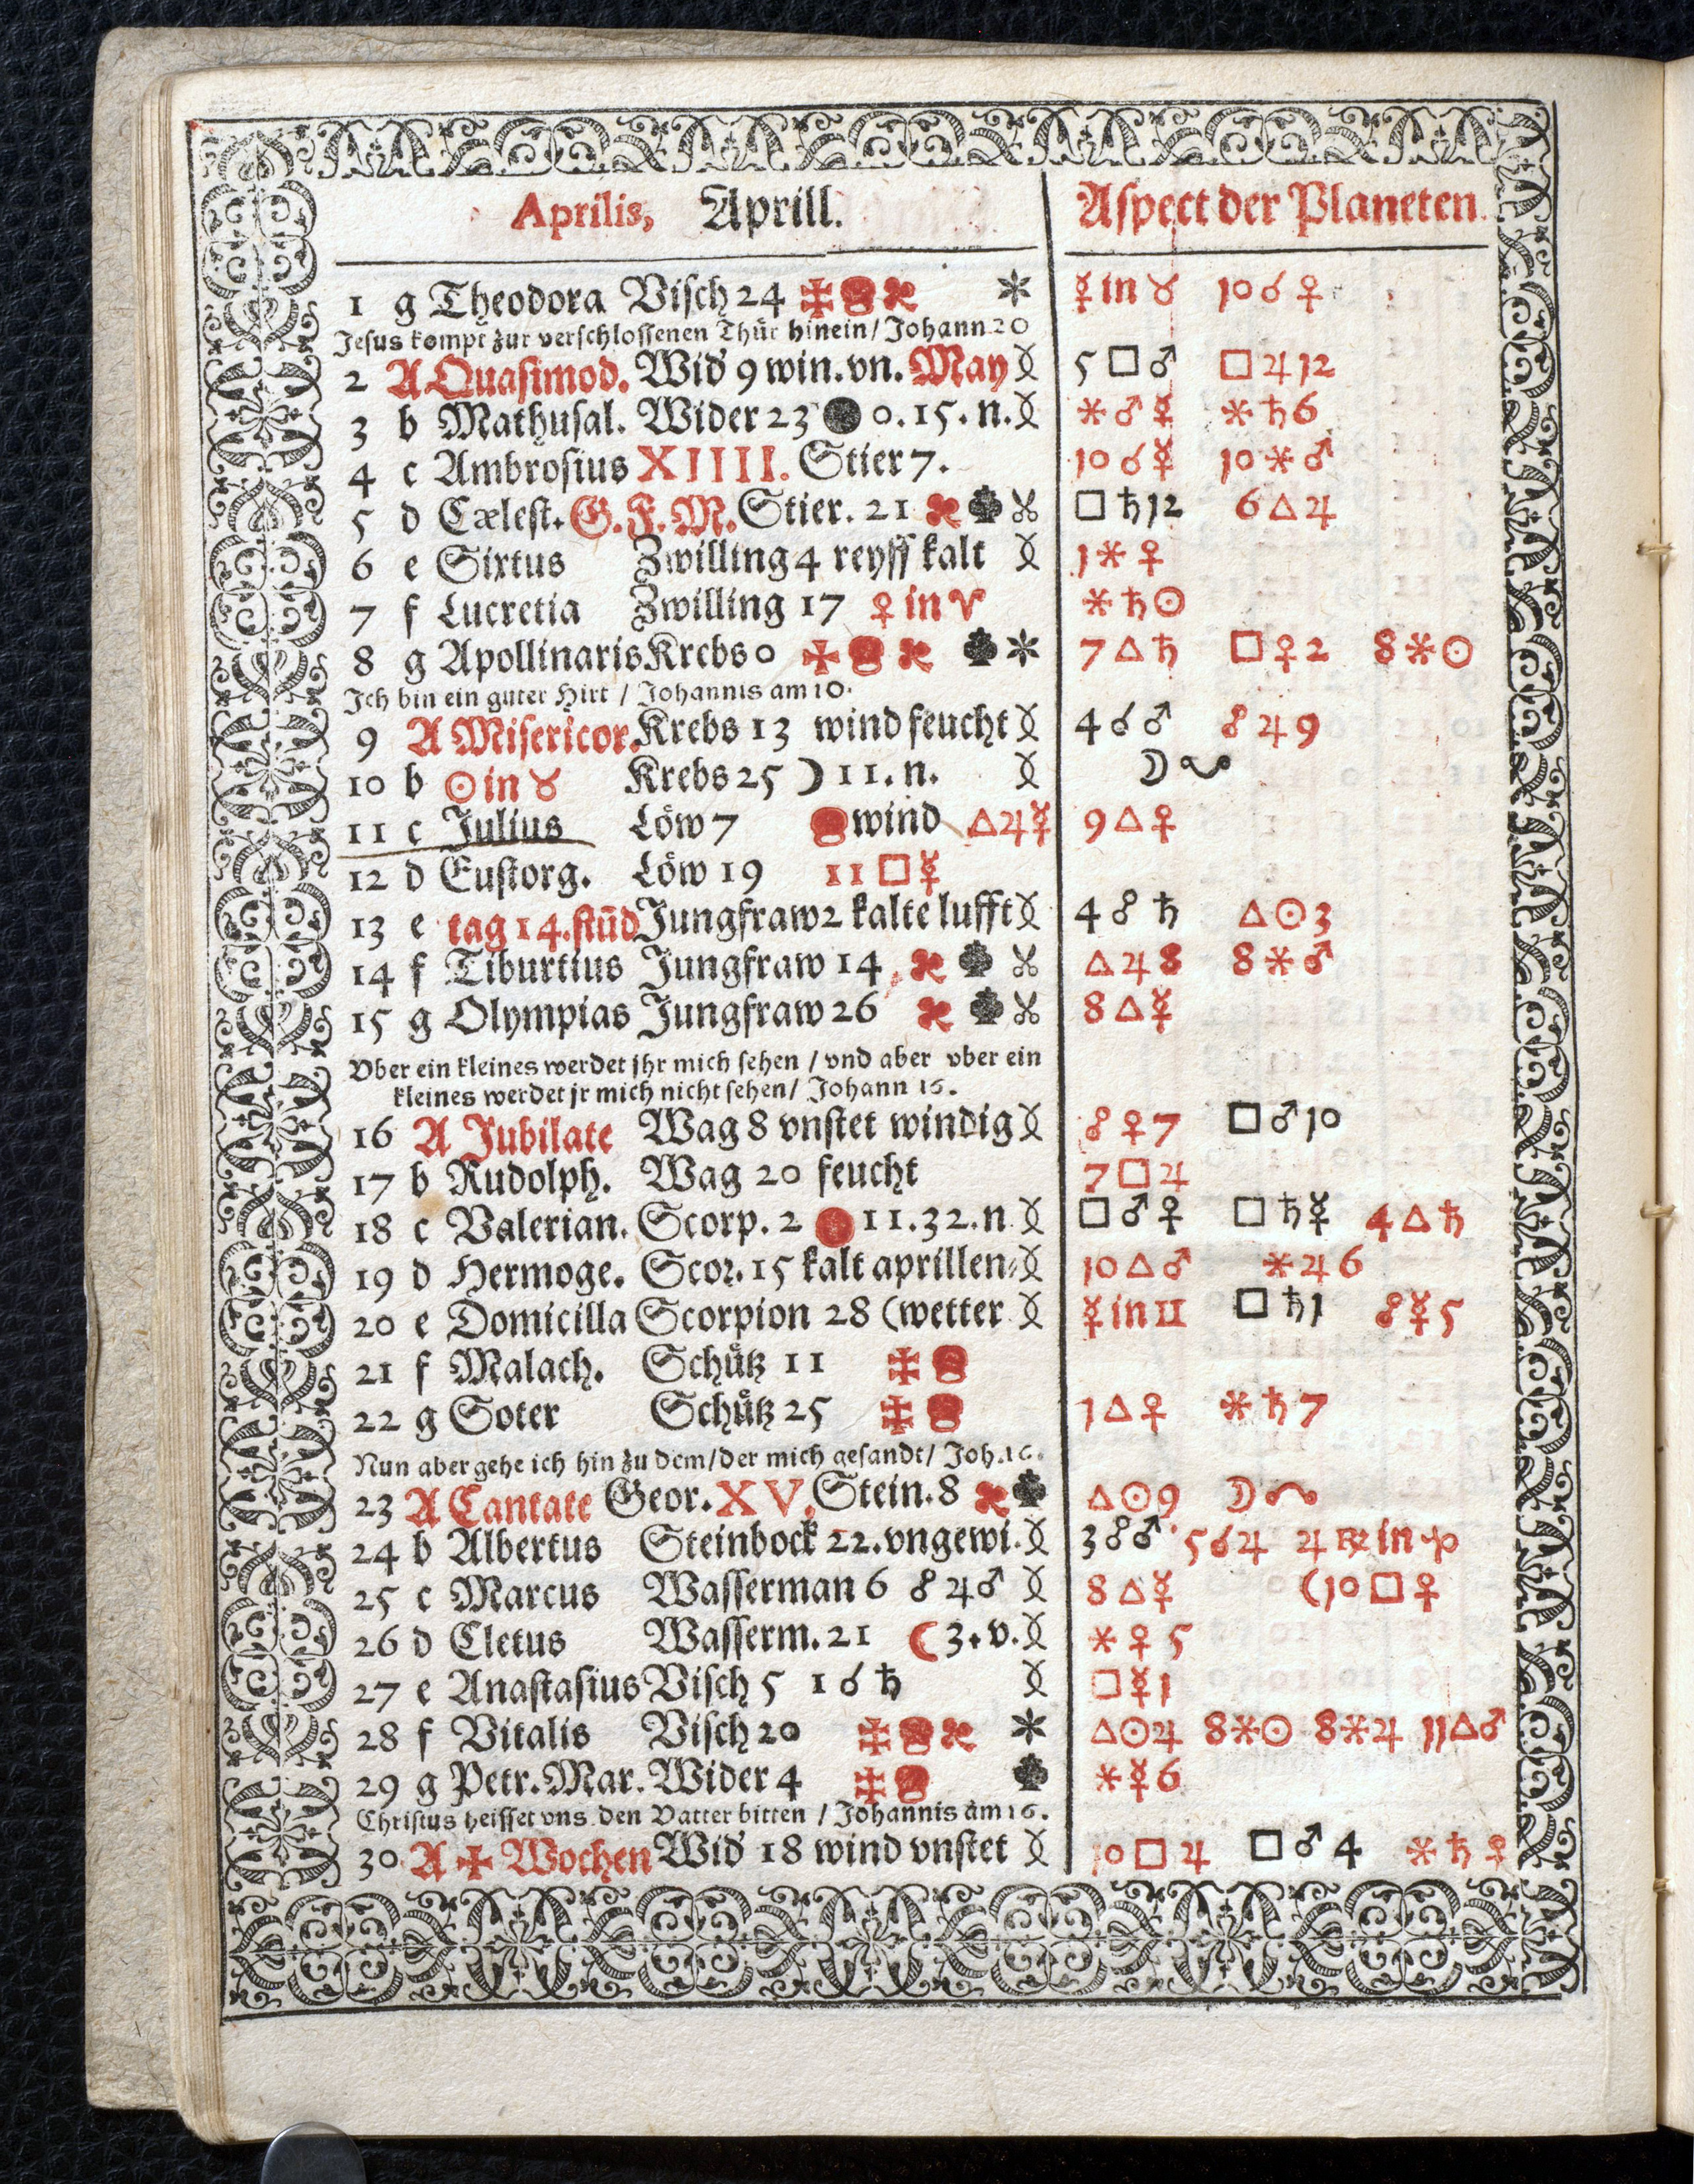 Aprilis, Aprill.
Aspect der Planeten.
1 g Theodora Visch 24 ✠ ☿ in ♉ 10 ☌ ♀
Jesus kompt zur verschlossenen Thür hinein/ Johann 20
2 A Quasimod. Wid 9 win. vn. May 5 □ ♂ □ ♃ 12
3 b Mathusal. Wider 23 ● 0. 15. n. ⚹ ♂ ☿ ⚹ ♄ 6
4 c Ambrosius XIIII. Stier 7. 10 ☌ ☿ 10 ⚹ ♂
5 d Cælest. G. F. M. Stier. 21 □ ♄ 12 6 △ ♃
6 e Sixtus Zwilling 4 reyff kalt 1 ⚹ ♀
7 f Lucretia Zwilling 17 ♀ in ♈ ⚹ ♄ ☉
8 g Apollinaris Krebs 0 ✠ 7 △ ♄ □ ♀ 2 8 ⚹ ☉
Ich bin ein guter Hirt / Johannis am 10.
9 A Misericor. Krebs 13 wind feucht 4 ☌ ♂ ☍ ♃ 9
10 b ☉ in ♉ Krebs 25 ☽ 11. n. ☽
11 c Julius Löw 7 wind △ ♃ ☿ 9 △ ♀
12 d Eustorg. Löw 19 11 □ ☿
13 e tag 14. stūd Jungfraw 2 kalte lufft 4 ☍ ♄ △ ☉ 3
14 f Tiburtius Jungfraw 14 △ ♃ 8 8 ⚹ ♂
15 g Olympias Jungfraw 26 8 △ ☿
Vber ein kleines werdet jhr mich sehen / vnd aber vber ein
kleines werdet jr mich nicht sehen/ Johann 16.
16 A Jubilate Wag 8 vnstet windig ☍ ♀ 7 □ ♂ 10
17 b Rudolph. Wag 20 feucht 7 □ ♃
18 c Valerian. Scorp. 2 ● 11. 32. n □ ♂ ♀ □ ♄ ☿ 4 △ ♄
19 d Hermoge. Scor. 15 kalt aprillen⸗ 10 △ ♂ ⚹ ♃ 6
20 e Domicilla Scorpion 28 (wetter ☿ in ♊ □ ♄ 1 ☍ ☿ 5
21 f Malach. Schütz 11 ✠
22 g Soter Schütz 25 ✠ 1 △ ♀ ⚹ ♄ 7
Nun aber gehe ich hin zu dem/ der mich gesandt/ Joh. 16.
23 A Cantate Geor. XV. Stein. 8 △ ☉ 9 ☽
24 b Albertus Steinbock 22. vngewi. 3 ☍ ♂ 5 ☌ ♃ ♃ ℞ in
25 c Marcus Wasserman 6 ☍ ♃ ♂ 8 △ ☿ (10 □ ♀
26 d Cletus Wasserm. 21 ☾ 3. v. ⚹ ♀ 5
27 e Anastasius Visch 5 1 ☌ ♄ □ ☿ 1
28 f Vitalis Visch 20 ✠ △ ☉ ♃ 8 ⚹ ☉ 8 ⚹ ♃ 11 △ ♂
29 g Petr. Mar. Wider 4 ✠ ⚹ ☿ 6
Christus heisset vns den Vatter bitten / Johannis am 16.
30 A ✠ Wochen Wid 18 wind vnstet 10 □ ♃ □ ♂ 4 ⚹ ♄ ♀